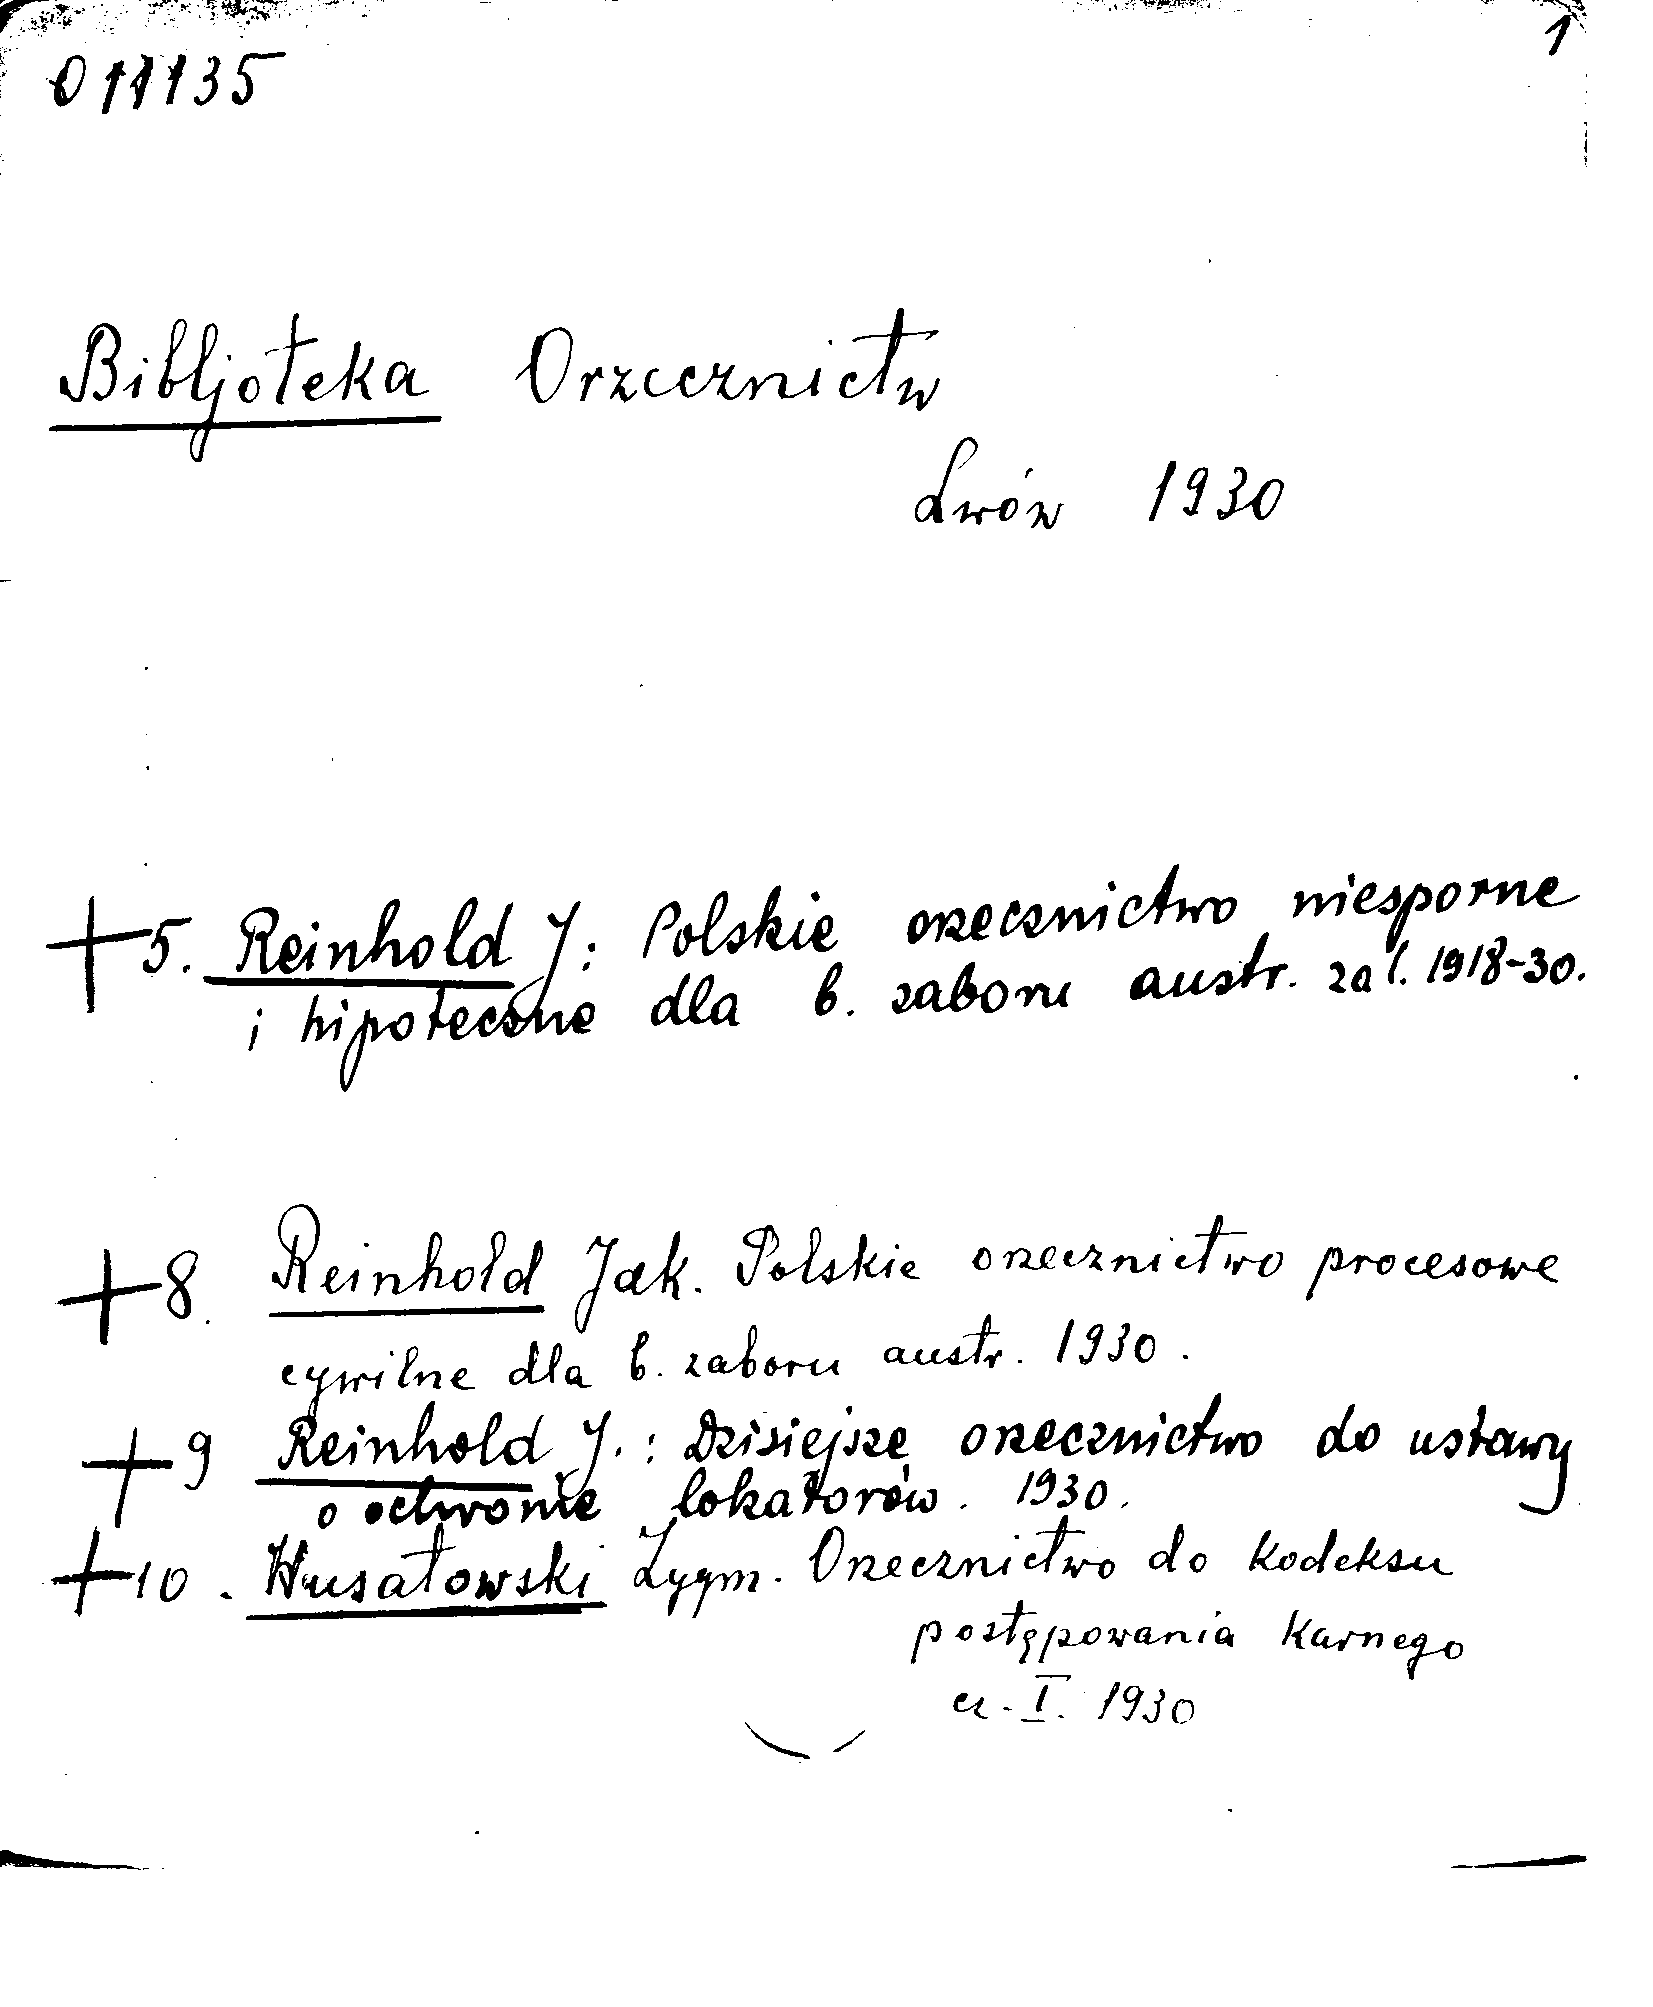 1
011135
Bibljoteka Orzecznictw
Lwów 1930
+5. Reinhold J: Polskie orzecznictwo niesporne
i hipoteczne dla b. zaboru austr. za l. 1918-30.
+8. Reinhold Jak. Polskie orzecznictwo procesowe
cywilne dla b. zaboru austr. 1930.
+9 Reinhold J.: Dzisiejsze orzecznictwo do ustawy
o ochronie lokatorów. 1930.
+10. Wusatowski Zygm. Orzecznictwo do kodeksu
postępowania karnego
cz. I. 1930